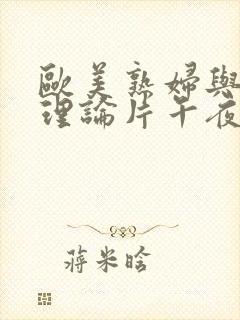 歐美熟婦與
理論片午夜
蔣米晗